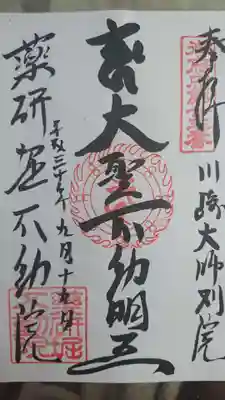 奉拝
川崎大師別院
大聖不動明王
平成三十年九月十九日
薬研堀不動院